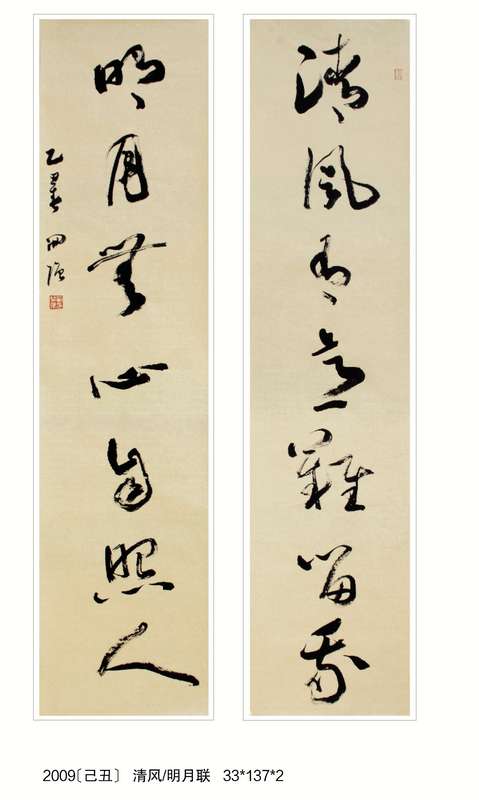 清風有意難留我
明月無心自照人
己丑春
2009〔己丑〕 清风/明月联 33*137*2